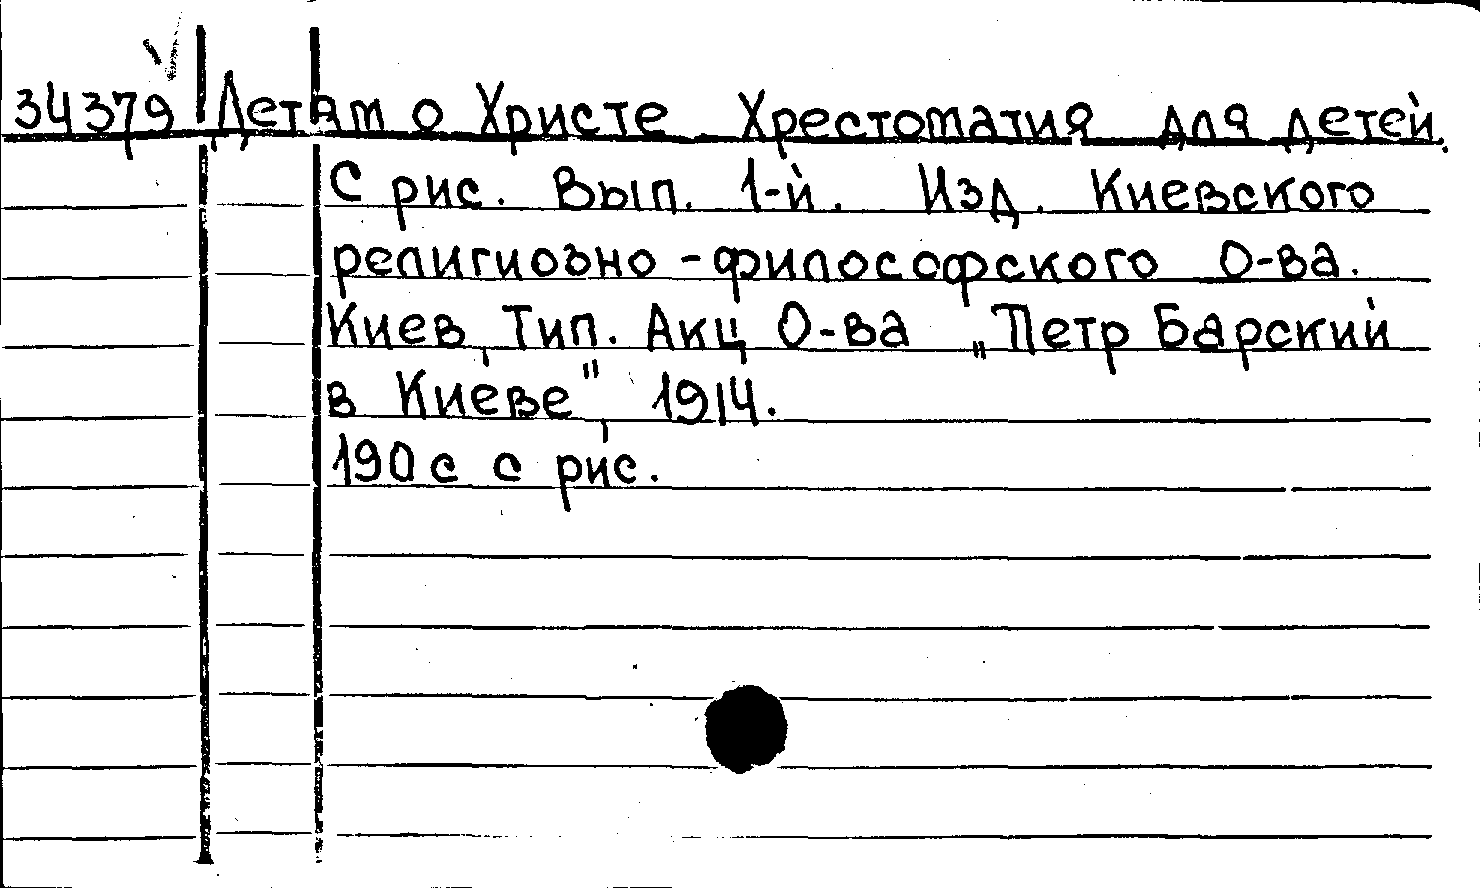 34379 Детям о Христе. Хрестоматия для детей.
С рис. Вып. 1-й. Изд. Киевского
религиозно-философского О-ва.
Киев, Тип. Акц О-ва „Петр Барский
в Киеве", 1914.
190 с с рис.